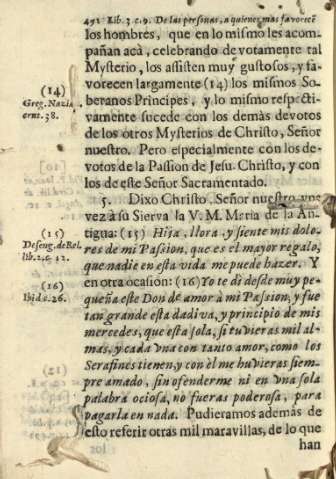 492 Lib. 3. c. 9. De las personas, a quienes mas favorecẽ
los hombres, que en lo mismo les acom-
pañan acà, celebrando devotamente tal
Mysterio, los assisten muy gustosos, y fa-
(14)
vorecen largamente (14) los mismos So-
Greg. Nazia.
beranos Principes, y lo mismo respecti-
38.
vamente sucede con los demàs devotos
de los otros Mysterios de Christo, Señor
nuestro. Pero especialmente con los de-
votos de la Passion de Jesu-Christo, y con
los de este Señor Sacramentado.
5. Dixo Christo, Señor nuestro vna
vez à su Sierva la V. M. Maria de la An-
(15)
tigua: (15) Hija, llora, y siente mis dolo-
Deseng. de Rel.
res de mi Passion, que es el mayor regalo,
lib. 2. c. 12.
que nadie en esta vida me puede hazer. Y
(16)
en otra ocasion: (16) Yo te di desde muy pe-
Ibid c. 26.
queña este Don de amor à mi Passion, y fue
tan grande esta dadiva, y principio de mis
mercedes, que esta sola, si tuvieras mil al-
mas, y cada vna con tanto amor, como los
Serafines tienen, y con èl me huvieras siem-
pre amado, sin ofenderme ni en vna sola
palabra ociosa, no fueras poderosa, para
pagarla en nada. Pudieramos ademas de
esto referir otras mil maravillas, de lo que
han